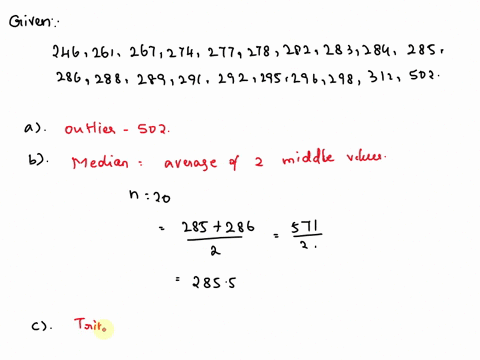 Given:-
246, 261, 267, 274, 277, 278, 282, 283, 284, 285,
286, 288, 289, 291, 292, 295, 296, 298, 312, 502.
a). outlier - 502.
b). Median = average of 2 middle values.
n = 20
= 285 + 286 / 2 = 571 / 2.
= 285.5
c). Tri